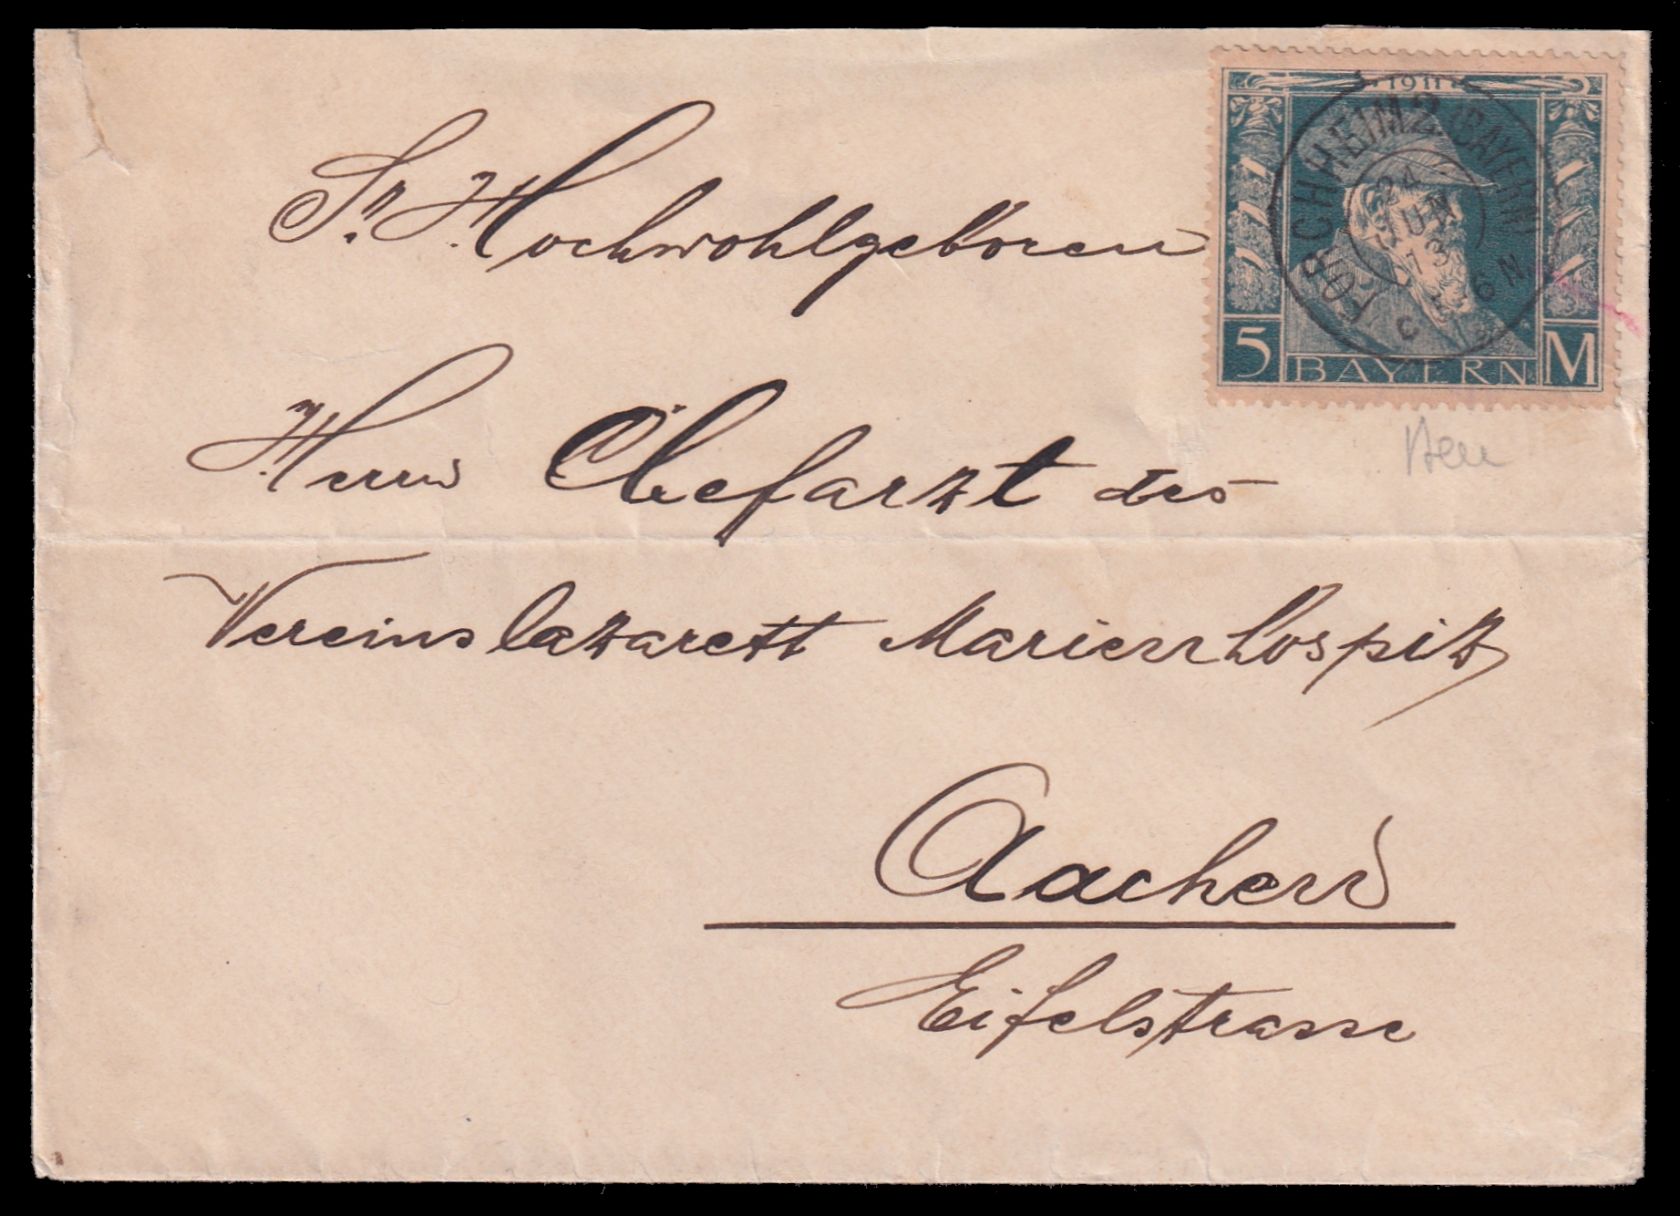 1911
FORCHHEIM 2 (BAYERN)
24
JUN
13
6 N
c
5 BAYERN M
Sr. Hochwohlgeboren
Herrn Chefarzt des
Vereinslazarett Marienhospitz
Aachen
Eifelstrasse